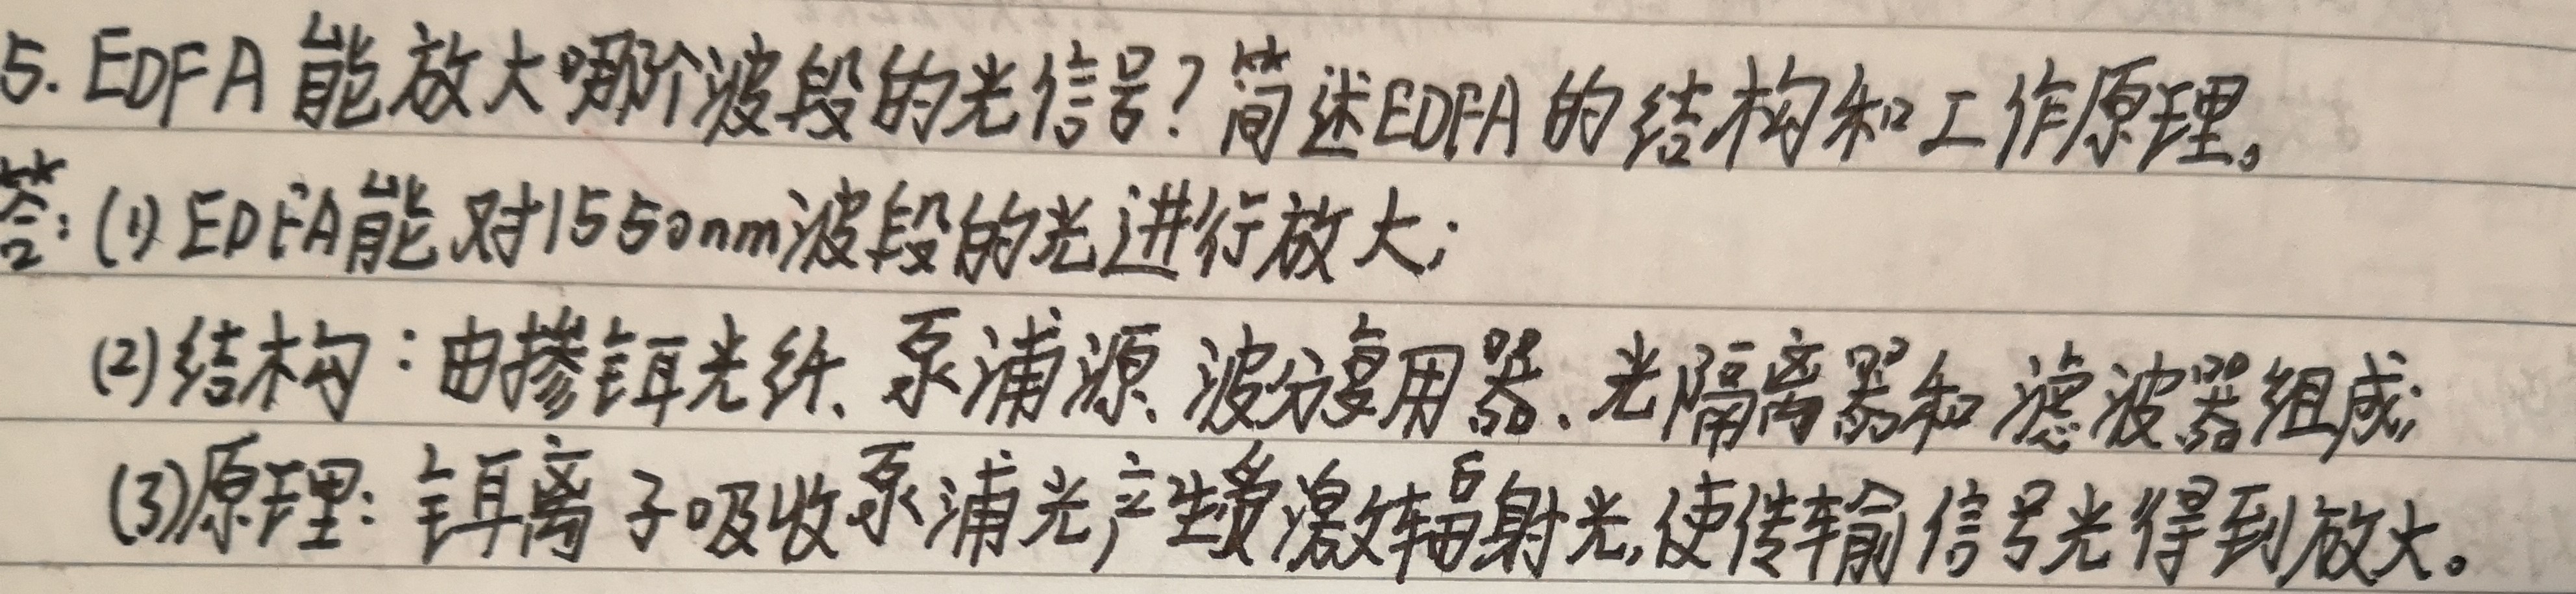 5. EDFA能放大哪个波段的光信号?简述EDFA的结构和工作原理。
答:(1) EDFA能对1550nm波段的光进行放大;
(2)结构:由掺铒光纤、泵浦源、波分复用器、光隔离器和滤波器组成;
(3)原理:铒离子吸收泵浦光产生受激辐射光,使传输信号光得到放大。